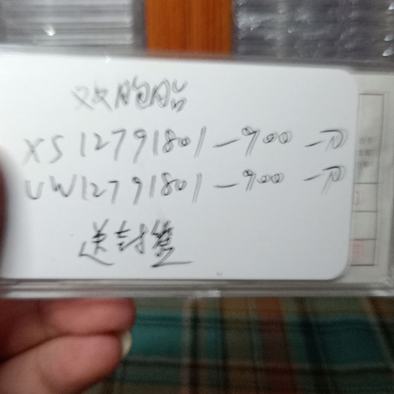 双胞胎
XS12791801-900一刀
UW12791801-900一刀
送封签